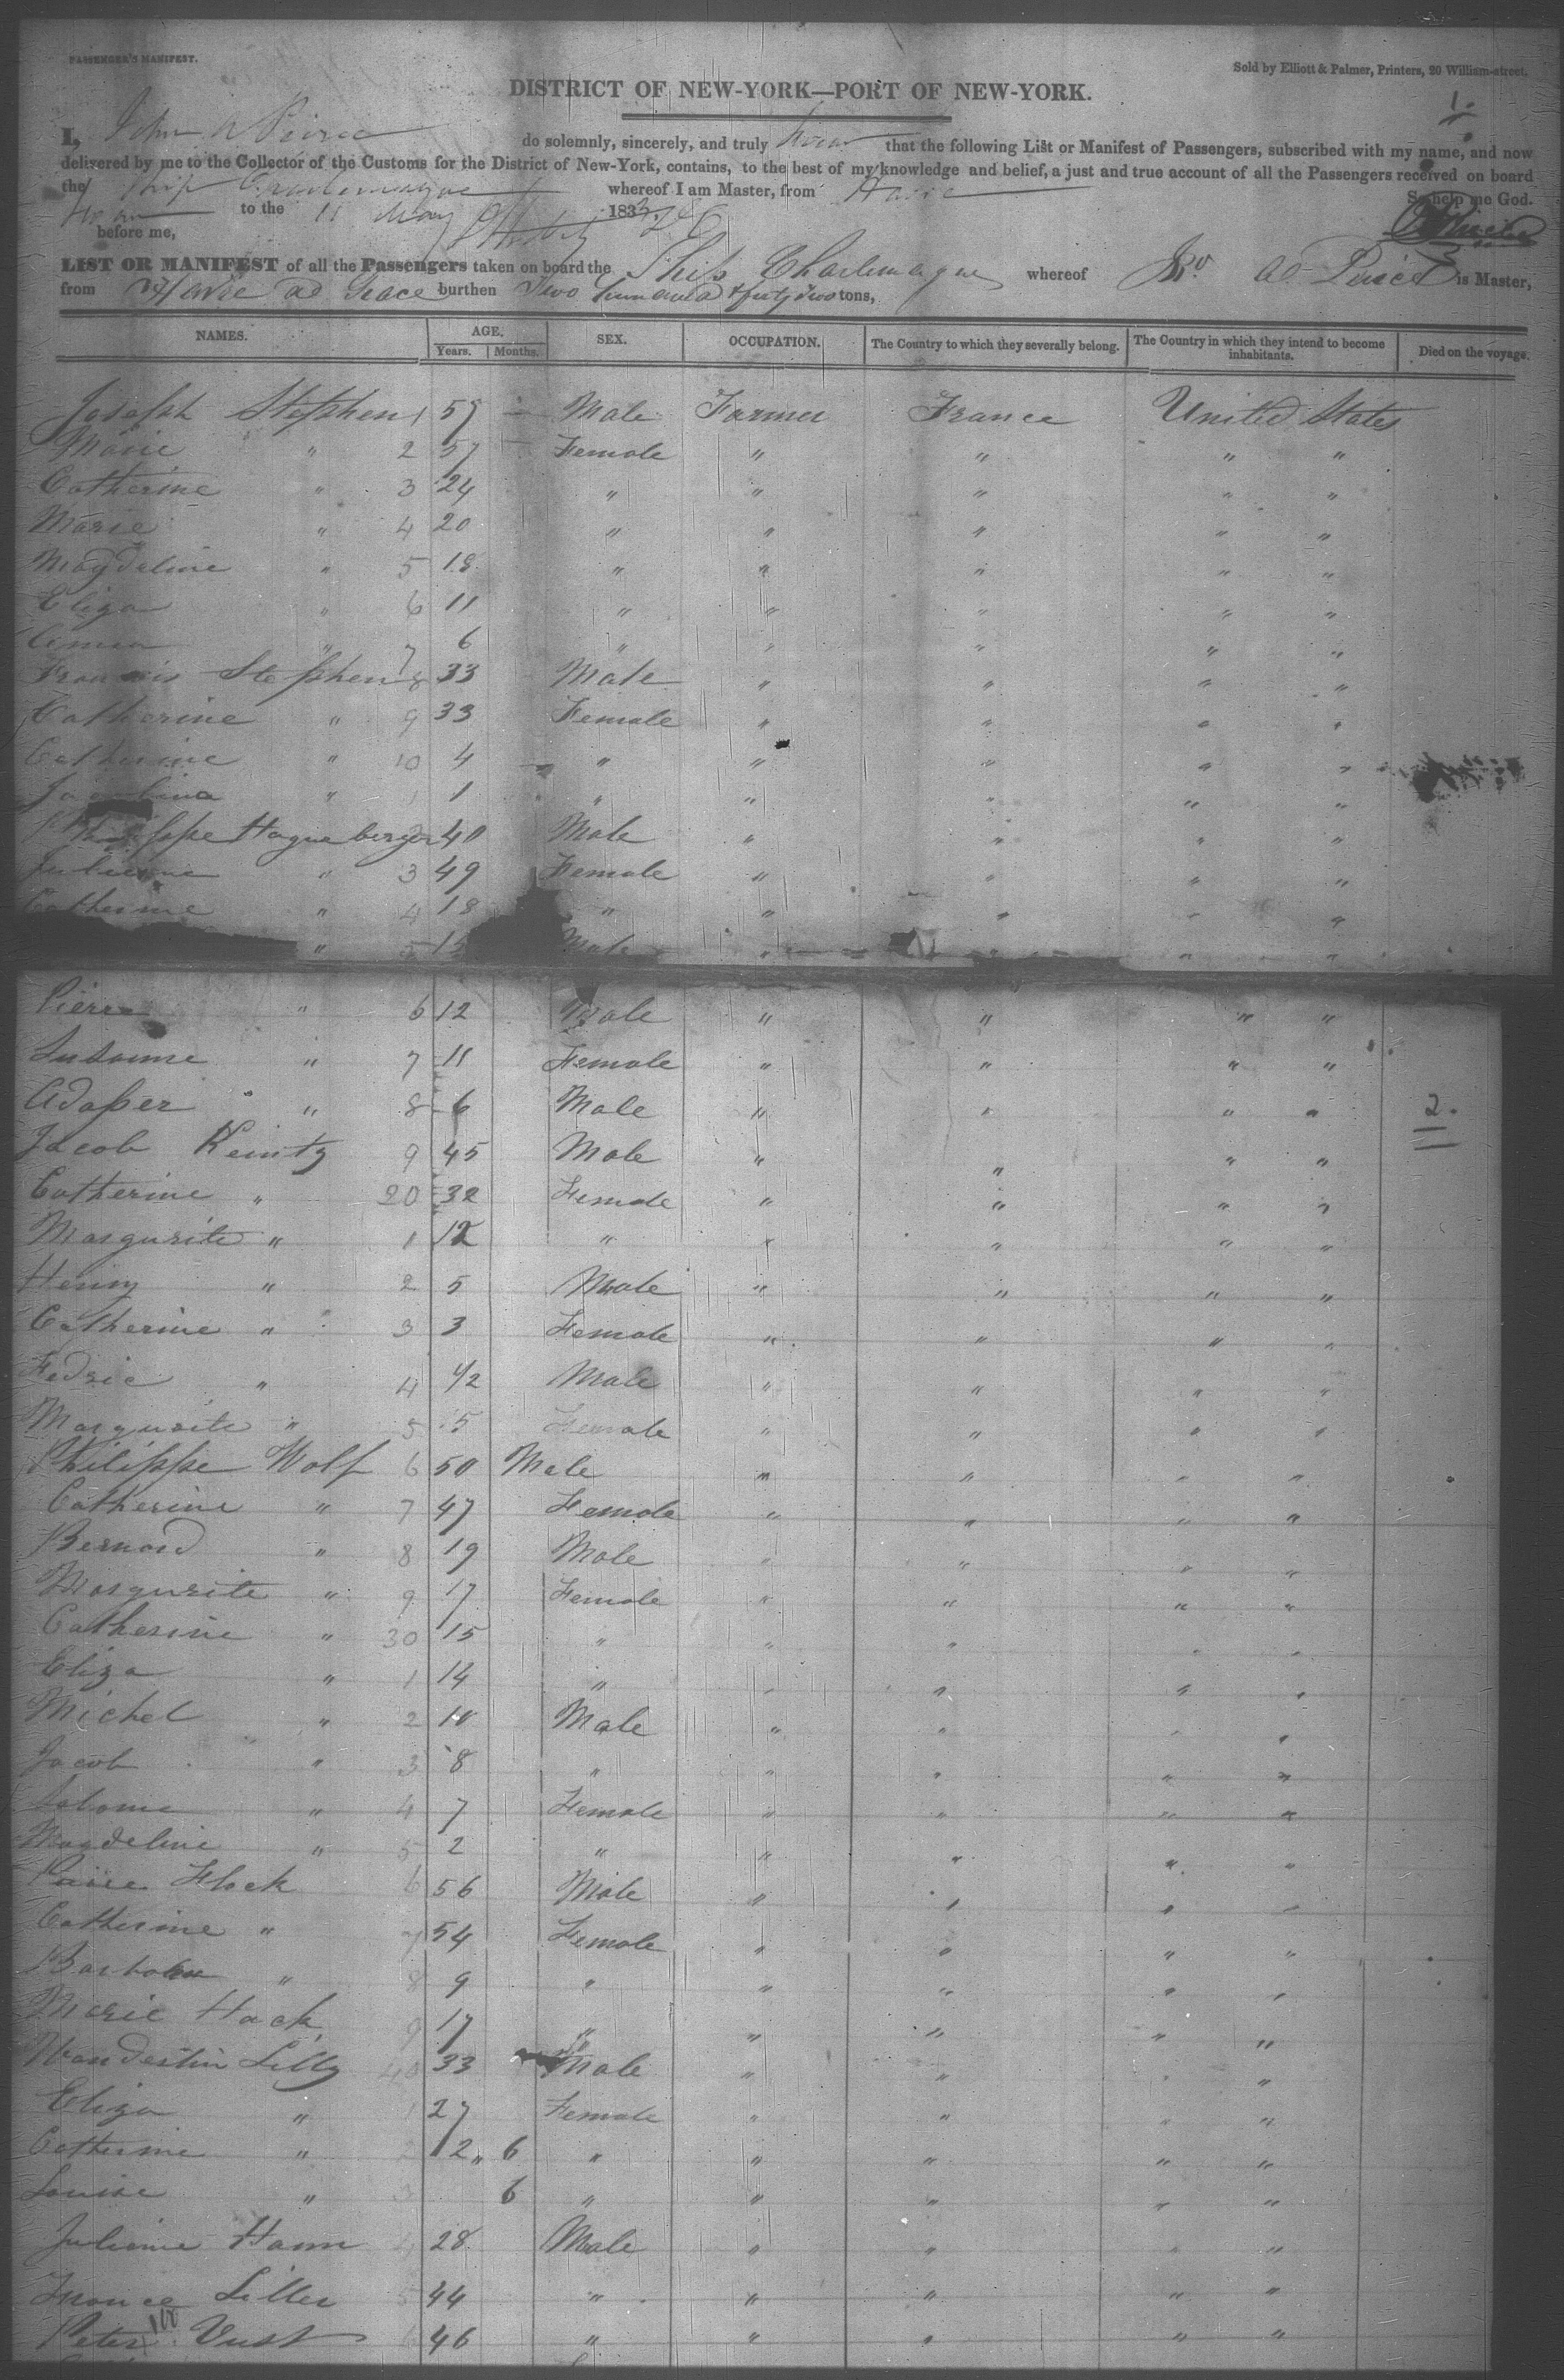 PASSENGER'S MANIFEST.
Sold by Elliott & Palmer, Printers, 20 William-street.
DISTRICT OF NEW-YORK—PORT OF NEW-YORK.
1.
I, John A Peirce do solemnly, sincerely, and truly swear that the following List or Manifest of Passengers, subscribed with my name, and now
delivered by me to the Collector of the Customs for the District of New-York, contains, to the best of my knowledge and belief, a just and true account of all the Passengers received on board
the Ship Charlemagne whereof I am Master, from Havre So help me God.
Sworn to the 11 May 183
before me,
LIST OR MANIFEST of all the Passengers taken on board the Ship Charlemagne whereof is Master,
from Havre de Grace burthen tons,
NAMES. AGE. SEX. OCCUPATION. The Country to which they severally belong. The Country in which they intend to become inhabitants. Died on the voyage.
Years. Months.
Joseph Stephen 1 59 Male Farmer France United States
Marie " 2 57 Female " " " "
Catherine " 3 24 " " " " "
Marie " 4 20 " " " " "
Magdeline " 5 18 " " " " "
Eliza " 6 11 " " " " "
" 7 6 " " " " "
Francois Stephen 8 33 Male " " " "
Catherine " 9 33 Female " " " "
Catherine " 10 4 " " " " "
" 1 1 " " " " "
Hagueberger 40 Male " " " "
Julienne " 3 49 Female " " " "
Catherine " 4 18 " " " " "
" 5 15 Male " " " "
Pierre " 6 12 Male " " " "
Susanne " 7 11 Female " " " "
Adaper " 8 6 Male " " " "
2.
Jacob Keintz 9 45 Male " " " "
Catherine " 20 32 Female " " " "
Margurite " 1 12 " " " " "
Henry " 2 5 Male " " " "
Catherine " 3 3 Female " " " "
Fedric " 4 1/2 Male " " " "
Margurite " 5 5 Female " " " "
Philippe Wolf 6 50 Male " " " "
Catherine " 7 47 Female " " " "
Bernard " 8 19 Male " " " "
Margurite " 9 17 Female " " " "
Catherine " 30 15 " " " " "
Eliza " 1 14 " " " " "
Michel " 2 10 Male " " " "
Jacob " 3 8 " " " " "
Salome " 4 7 Female " " " "
Magdeline " 5 2 " " " " "
Flock 6 56 Male " " " "
Catherine " 7 54 Female " " " "
" 8 9 " " " " "
Marie Hack 9 17 " " " " "
Lilly 40 33 Male " " " "
Eliza " 1 27 Female " " " "
Catherine " 2 " 6 " " " " "
Louise " 6 " " " " "
Julienne Hann 4 28 Male " " " "
Liller 5 44 " " " " "
Peter Vust 6 46 " " " " "